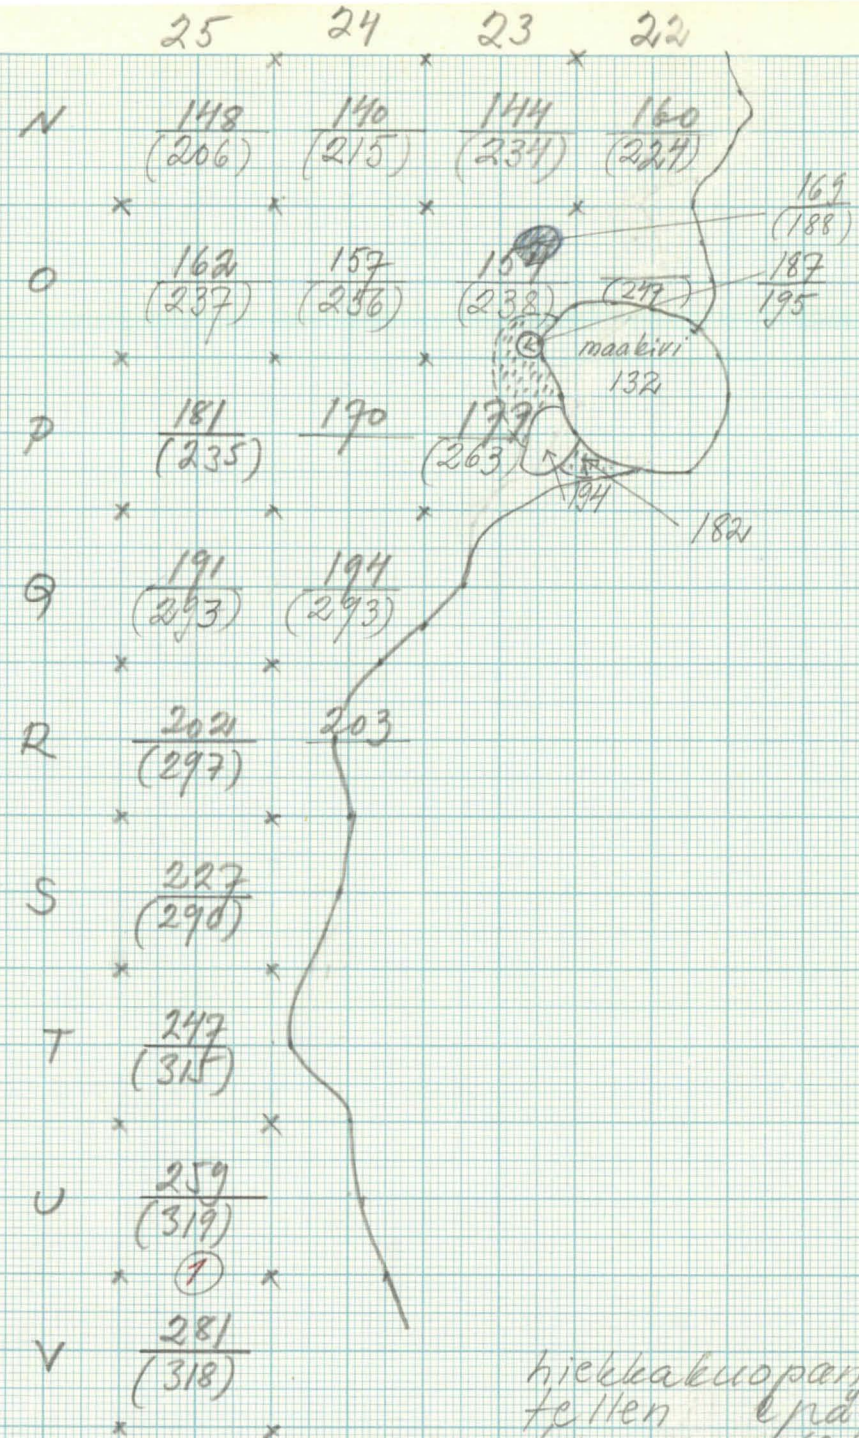 25 24 23 22
N 148 140 144 160
(206) (215) (234) (224)
169
(188)
O 162 157 154
(237) (256) (238) (247)
187
195
maakivi
132
P 181 170 177
(235) (263)
194
182
Q 191 194
(293) (293)
R 202 203
(297)
S 227
(290)
T 247
(315)
U 259
(319)
1
V 281
(318)
hiekkakuopan
tellen epä